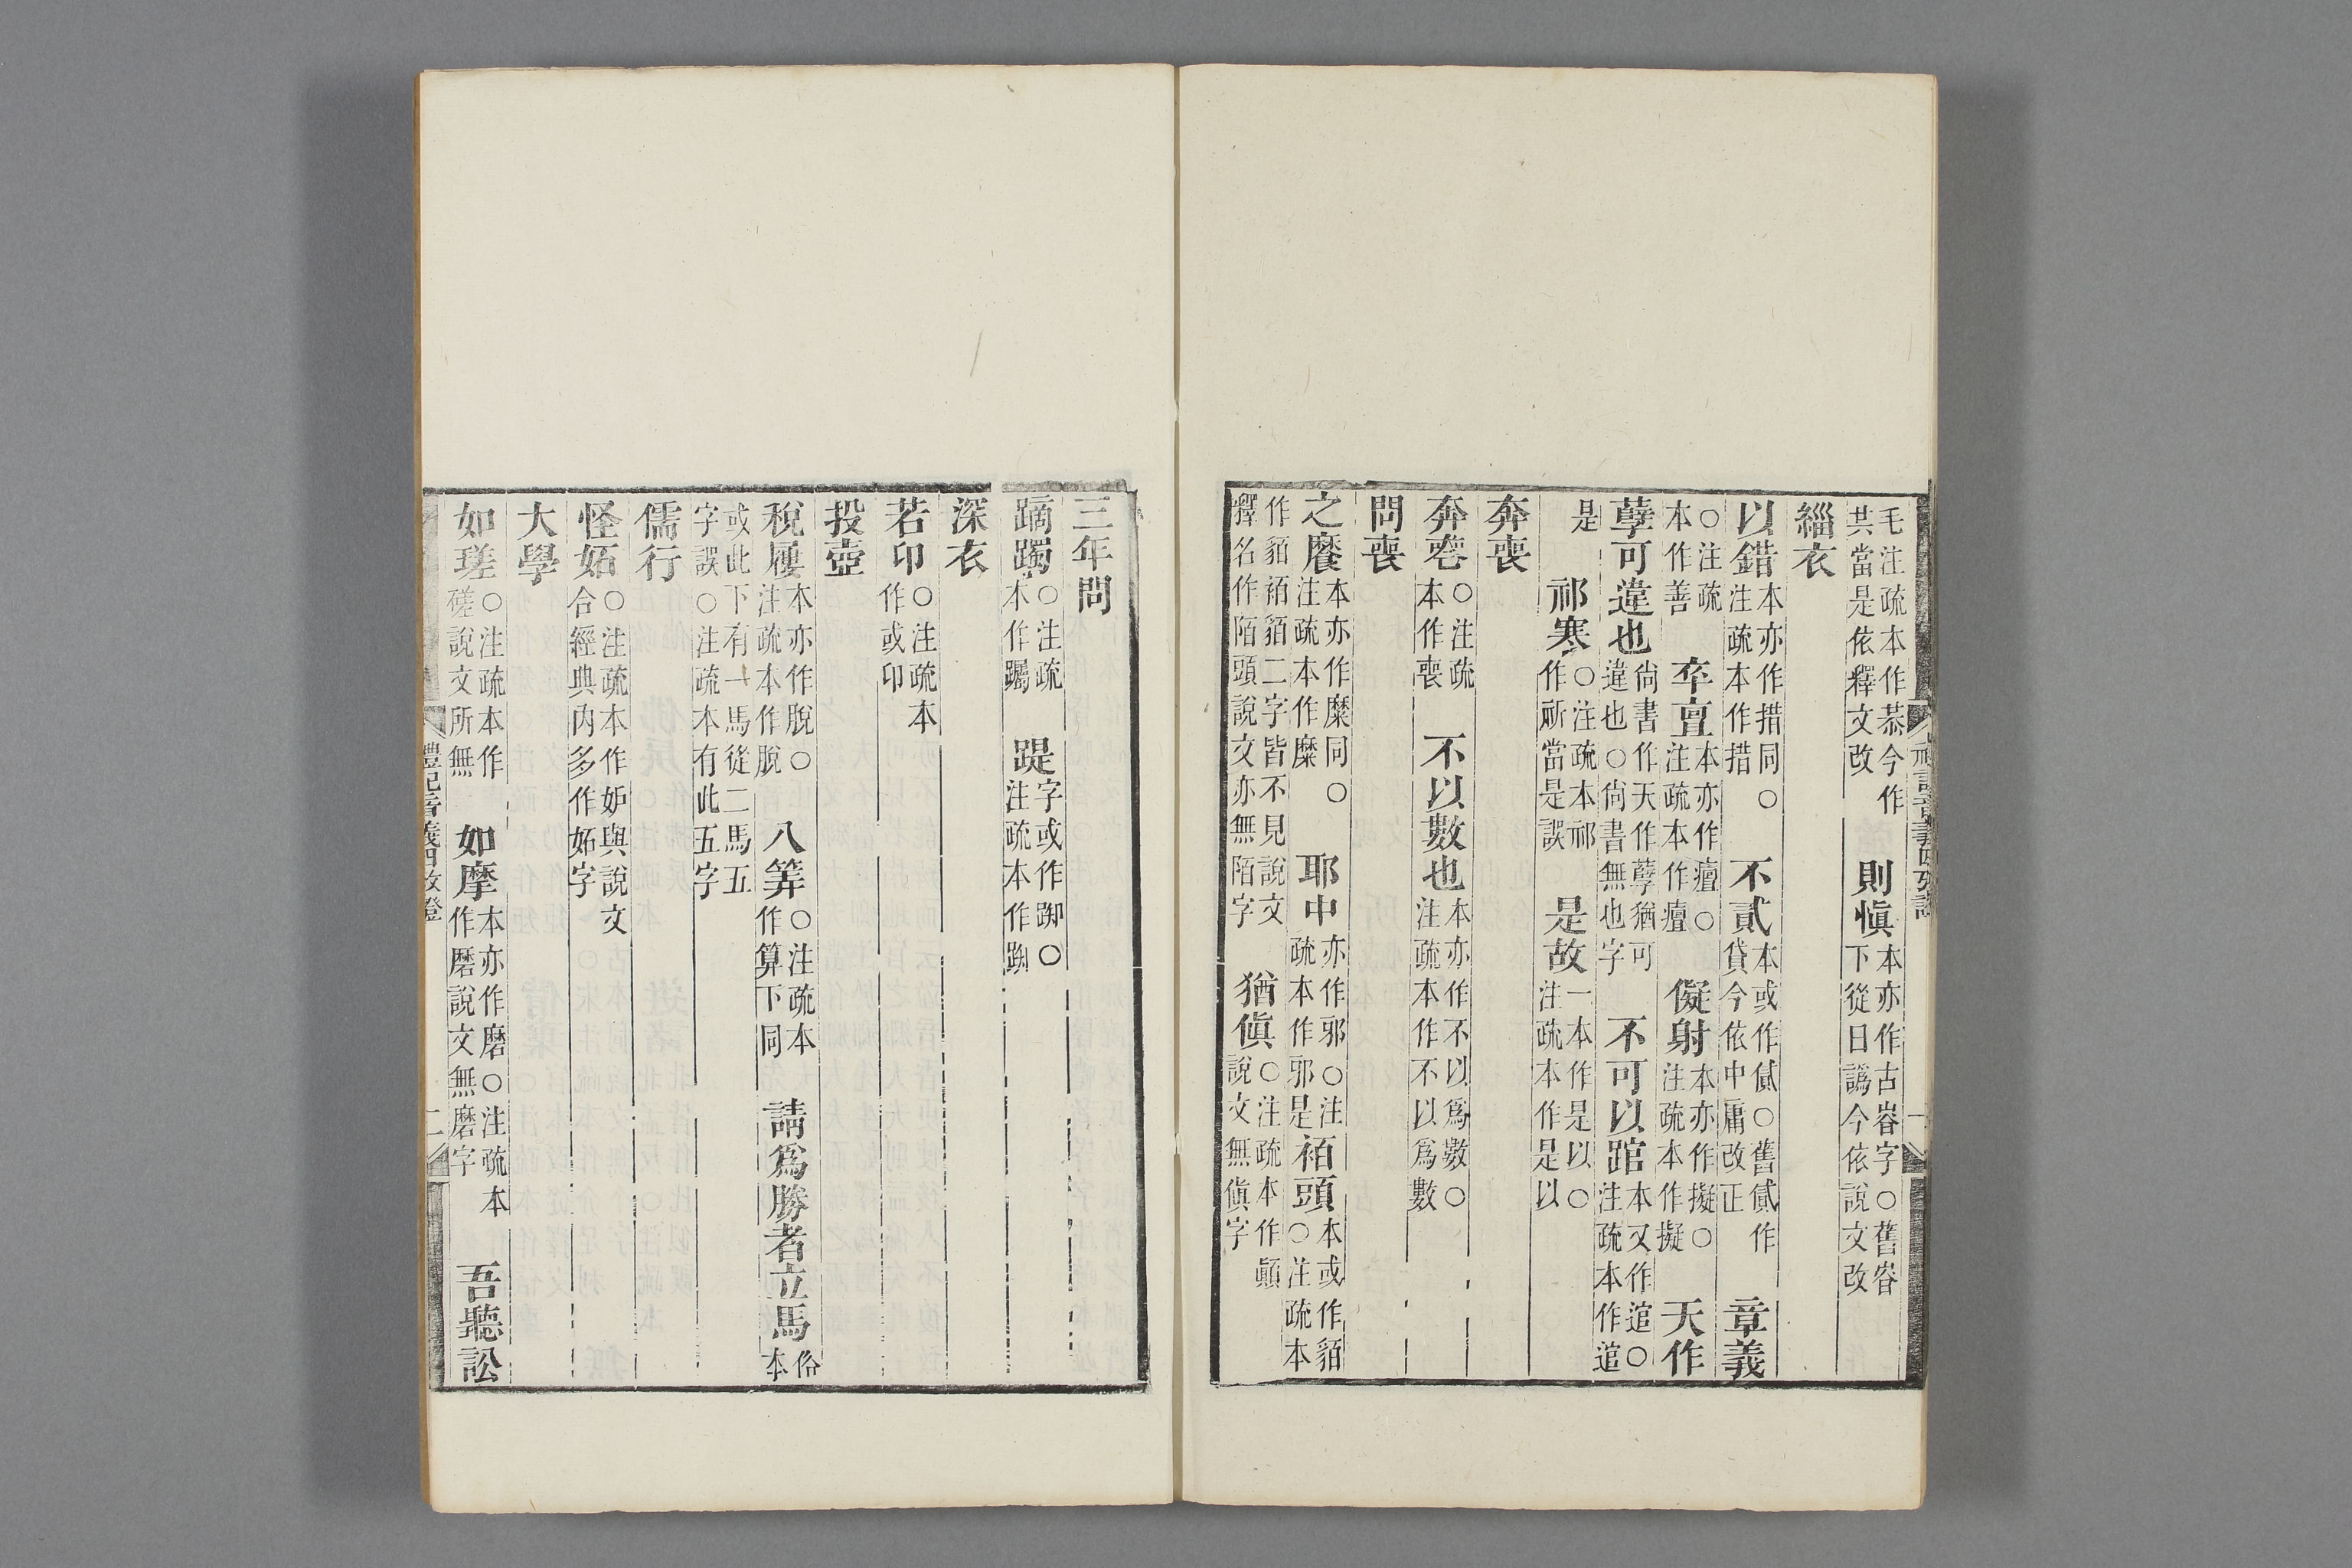 毛注疏本作恭今作共當是依釋文改 則愼本亦作古昚字○舊昚下從日譌今依說文改
緇衣
以錯本亦作措同○注疏本作措 不貳本或作貣○舊貳作貸今依中庸改正 章義
○注疏本作善 卒亶本亦作癉○注疏本作癉 儗射本亦作擬○注疏本作擬 天作
孽可違也尙書作天作孽猶可違也○尙書無也字 不可以踣本又作逭○注疏本作逭
是 祁寒○注疏本祁作祈當是誤 是故一本作是以○注疏本作是以
奔喪
奔喪○注疏本作喪 不以數也本亦作不以爲數○注疏本作不以爲數
問喪
之麋本亦作糜同○注疏本作糜 耶中亦作邪○注疏本作邪是 袹頭本或作貊○注疏本
作貊袹貊二字皆不見說文釋名作陌頭說文亦無陌字 猶傎○注疏本作顚說文無傎字
三年問
蹢躅○注疏本作躅 踶字或作踟○注疏本作踟
深衣
若印○注疏本作或印
投壺
稅屨本亦作脫○注疏本作脫 八筭○注疏本作算下同 請爲勝者立馬俗本
或此下有一馬從二馬五字誤○注疏本有此五字
儒行
怪妬○注疏本作妒與說文合經典內多作妬字
大學
如瑳○注疏本作磋說文所無 如摩本亦作磨○注疏本作磨說文無磨字 吾聽訟
禮記音義四攷證
二